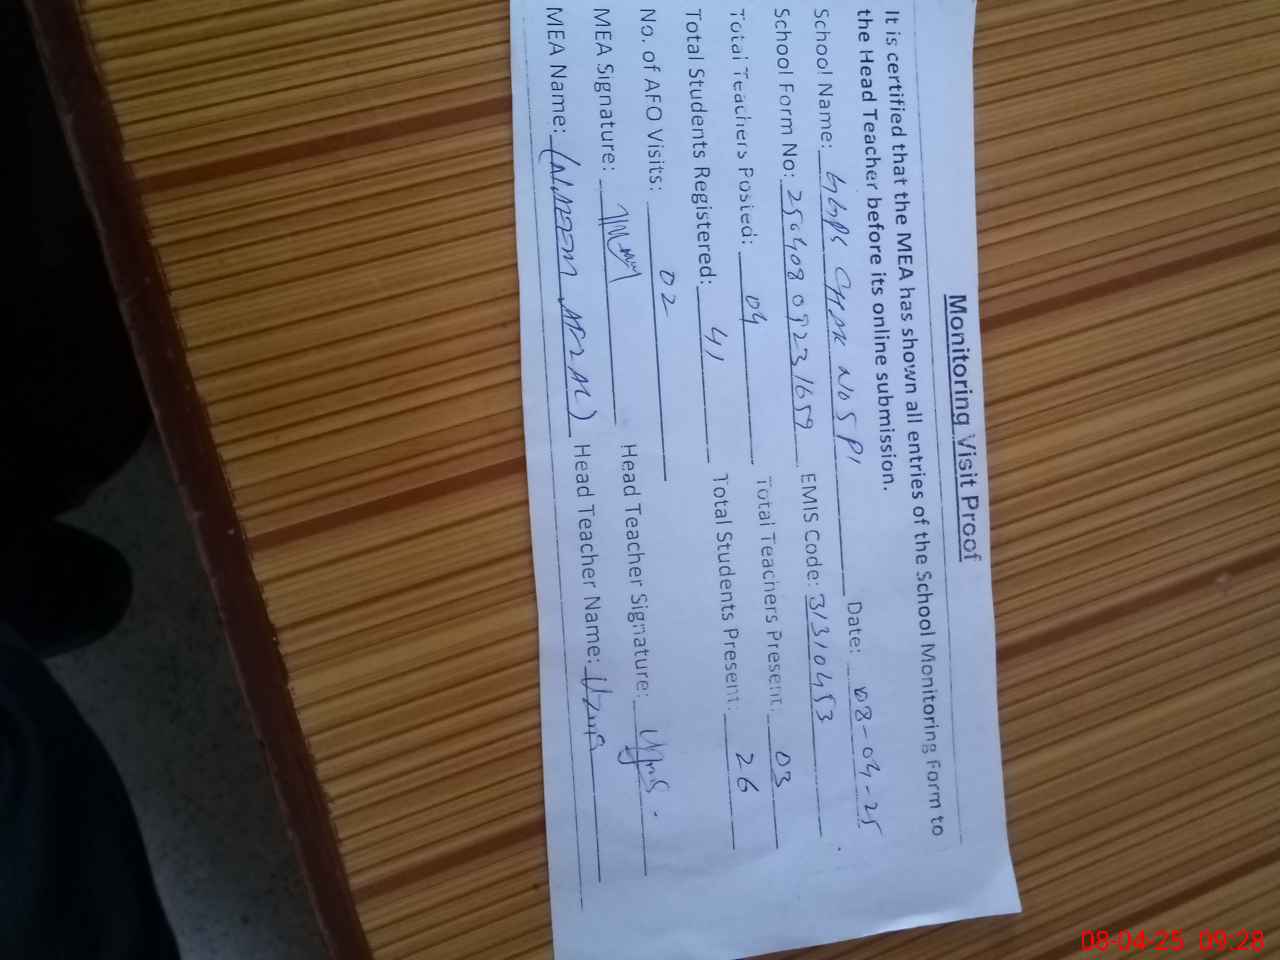 Monitoring Visit Proof
It is certified that the MEA has shown all entries of the School Monitoring Form to
the Head Teacher before its online submission.
School Name: GGPS Chak No 5 P1 Date: 08-04-25
School Form No: 25040809231659 EMIS Code: 31310453
Total Teachers Posted: 04 Total Teachers Present: 03
Total Students Registered: 41 Total Students Present: 26
No. of AFO Visits: 02
MEA Signature: Head Teacher Signature:
MEA Name: (NAEEM AFZAL) Head Teacher Name:
08-04-25 09:28